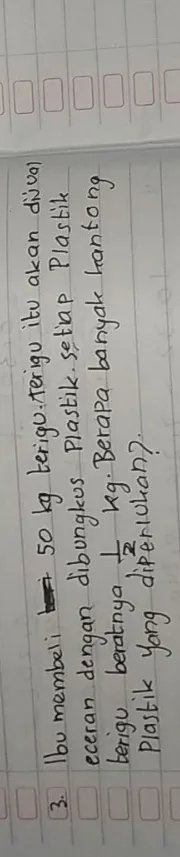 3. Ibu membeli 50 kg terigu. Terigu itu akan dijual
eceran dengan dibungkus Plastik. setiap Plastik
terigu beratnya 1/2 kg. Berapa banyak kantong
Plastik yang diperlukan?